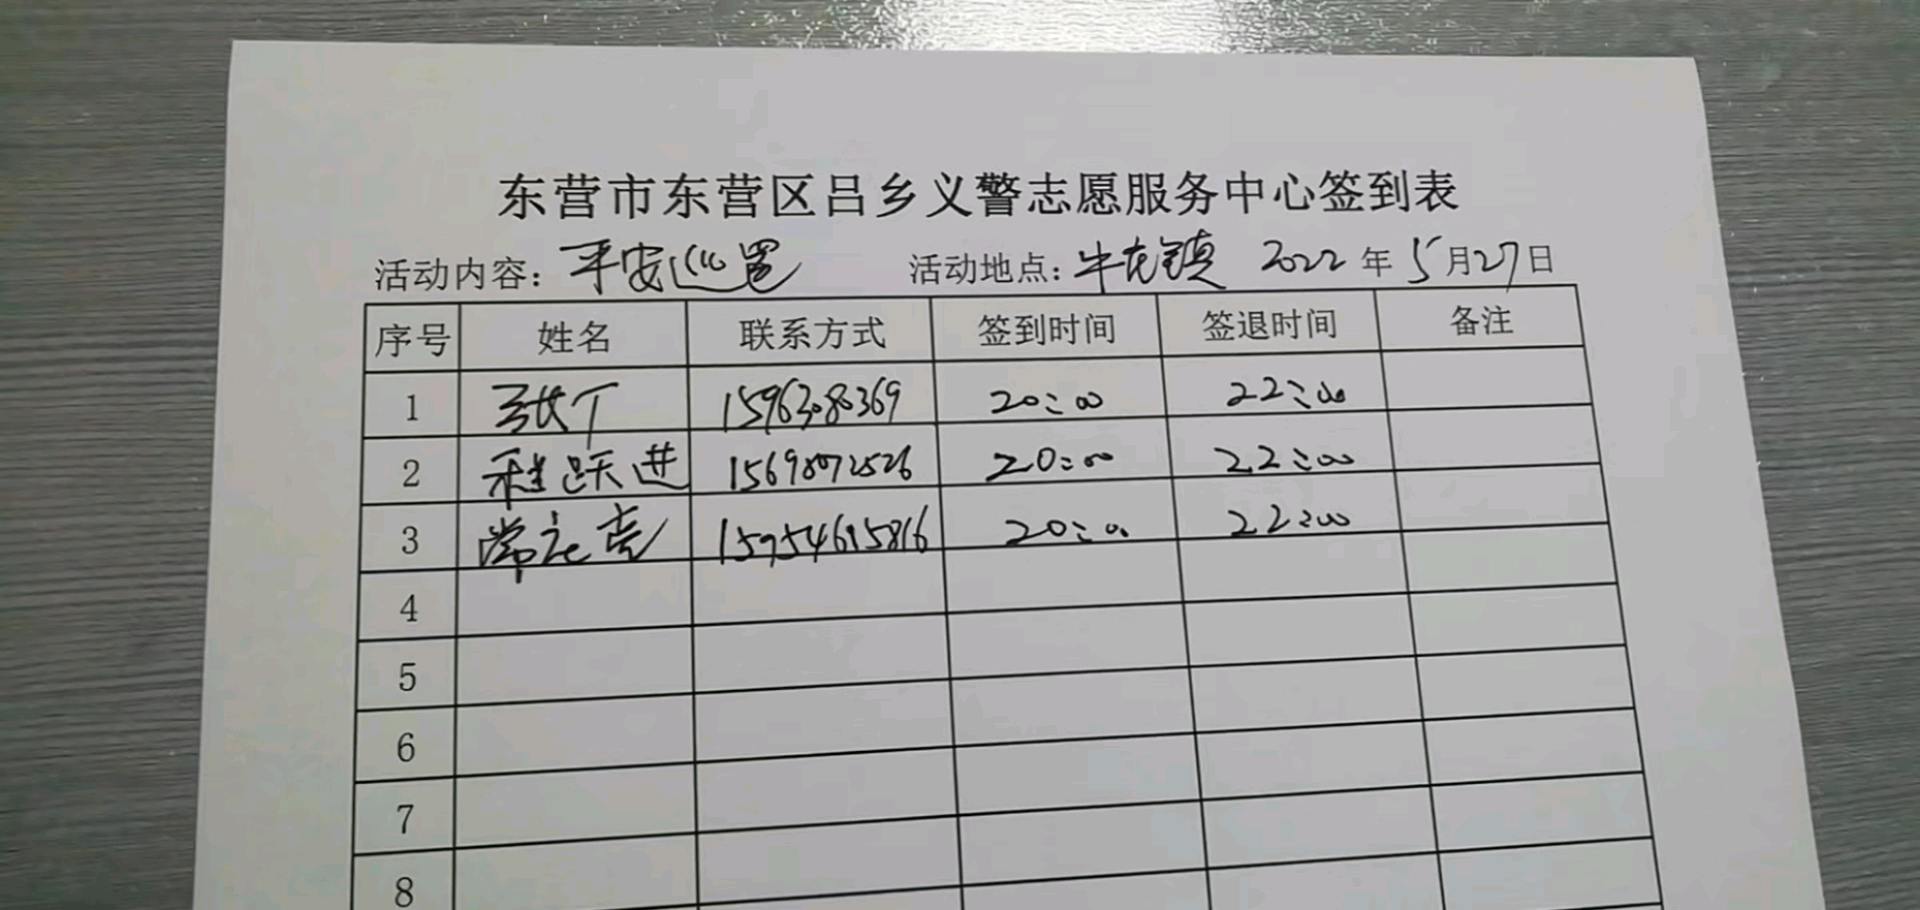 东营市东营区吕乡义警志愿服务中心签到表
活动内容：平安巡逻 活动地点：牛庄镇 2022年5月27日
序号 姓名 联系方式 签到时间 签退时间 备注
1 15963080369 20:00 22:00
2 程跃进 15698072526 20:00 22:00
3 常亮 15954695816 20:00 22:00
4
5
6
7
8